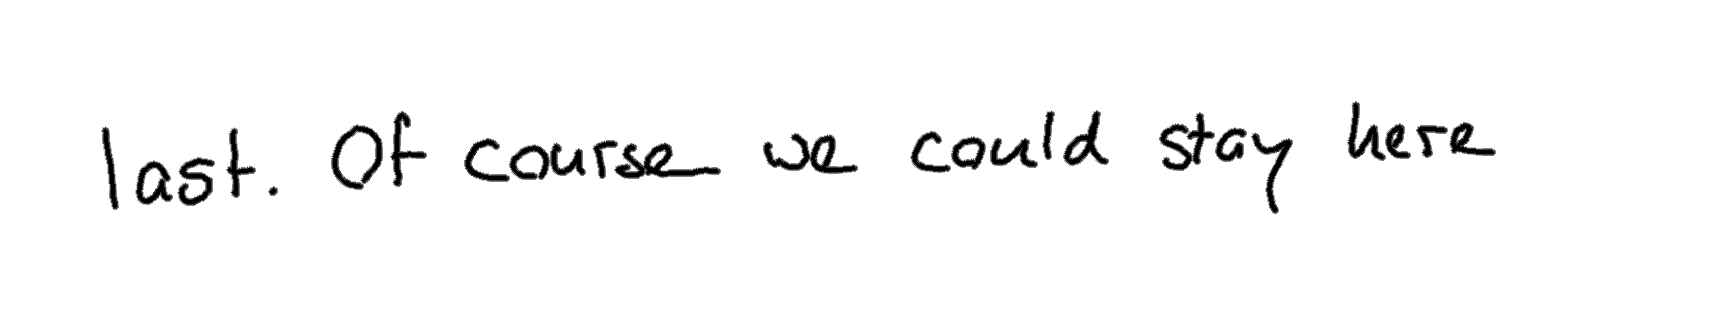 last. Of course we could stay here